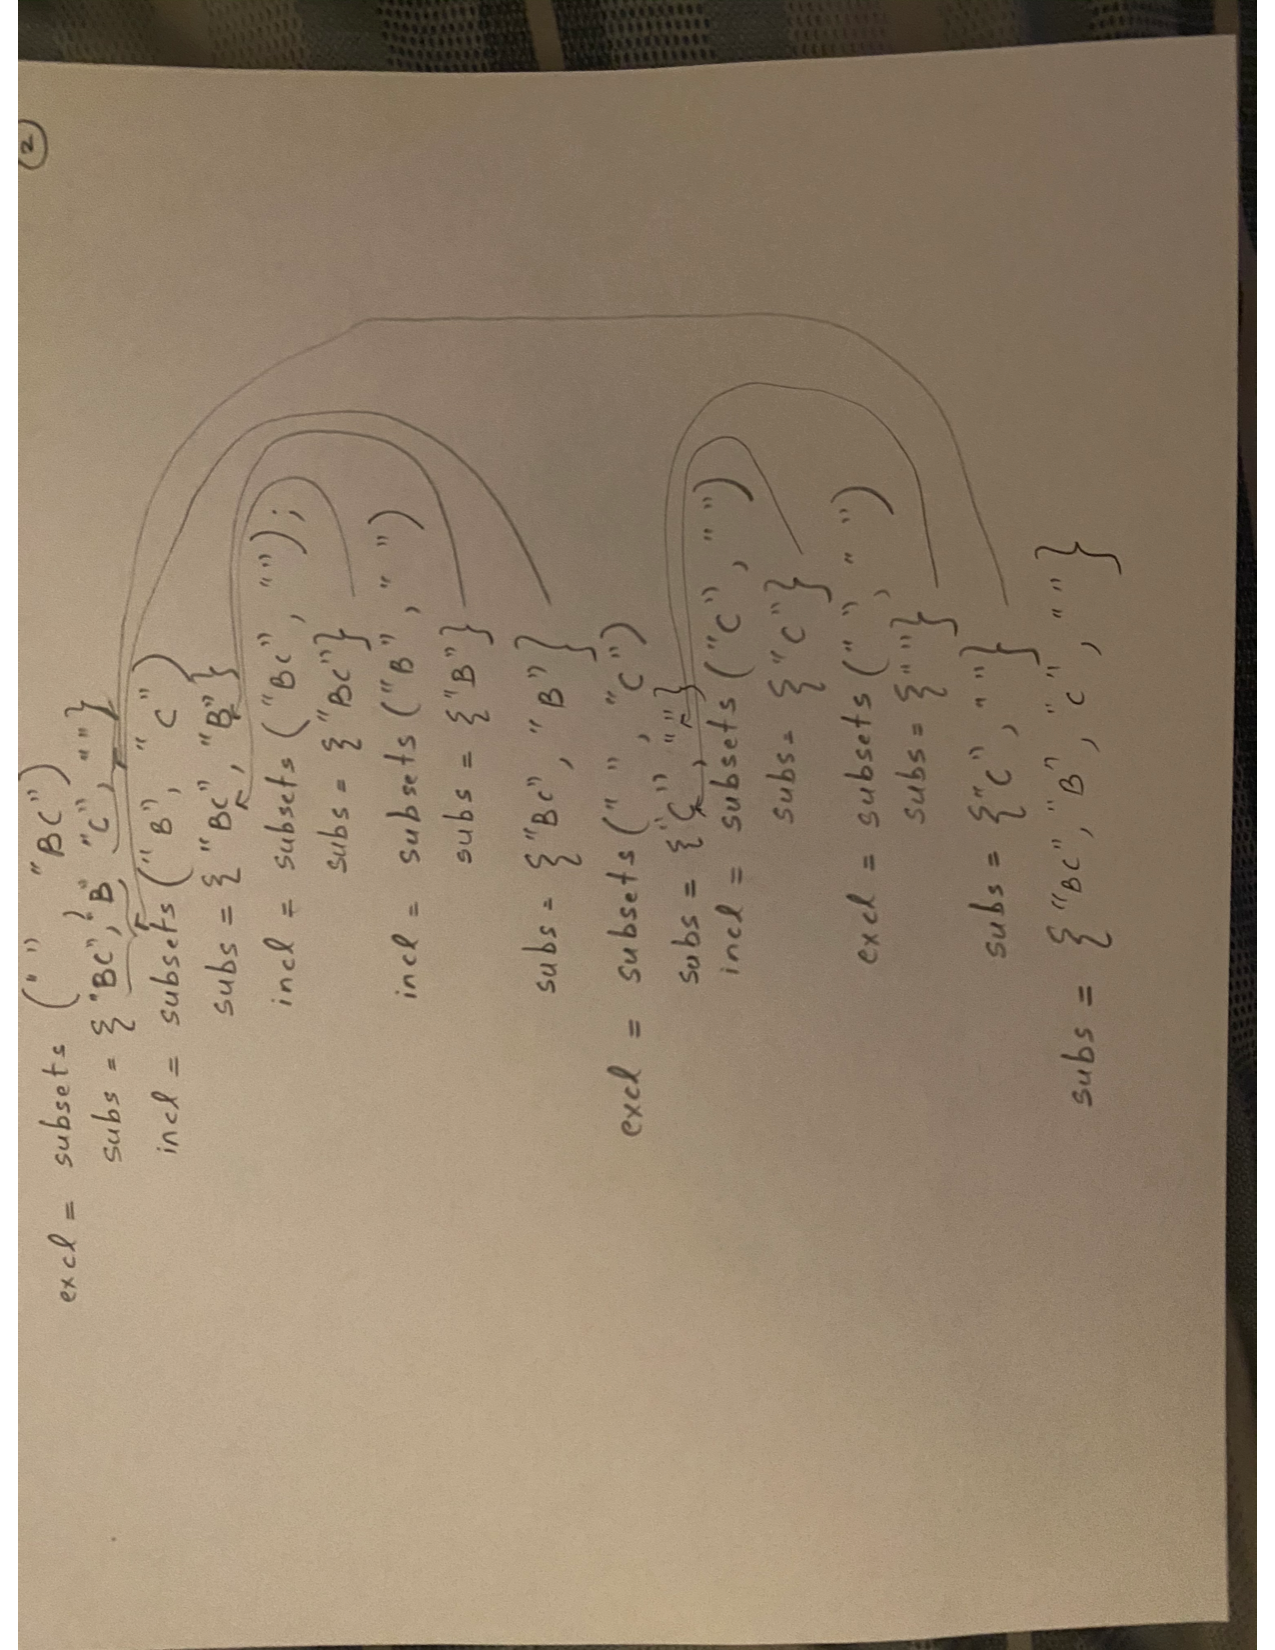 2
excl = subsets (" ") "BC")
subs = {"BC", B" "C", " "}
incl = subsets ("B", "C")
subs = {"BC", "B"}
incl = subsets ("BC", "");
subs = {"BC"}
incl = subsets ("B", " ")
subs = {"B"}
subs = {"BC", "B"}
excl = subsets (" ", "C")
subs = {"C", " "}
incl = subsets ("C", " ")
subs = {"C"}
excl = subsets (" ", " ")
subs = {" "}
subs = {"C", " "}
subs = {"BC", "B", "C", " "}